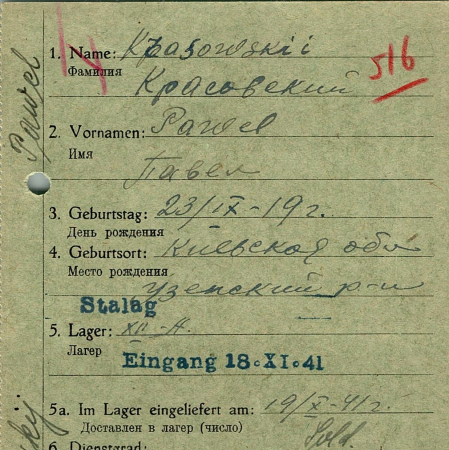 516
1. Name: Krasowskii
Фамилия
Красовский
Pawel
2. Vornamen: Pawel
Имя
Павел
3. Geburtstag: 23/IX-19 г.
День рождения
4. Geburtsort: Киевская обл
Место рождения
р-н
Stalag
5. Lager: XII-A.
Лагер
Eingang 18.XI.41
5a. Im Lager eingeliefert am: 19/X-41 г.
Доставлен в лагер (число)
Sold.
6. Dienstgrad: